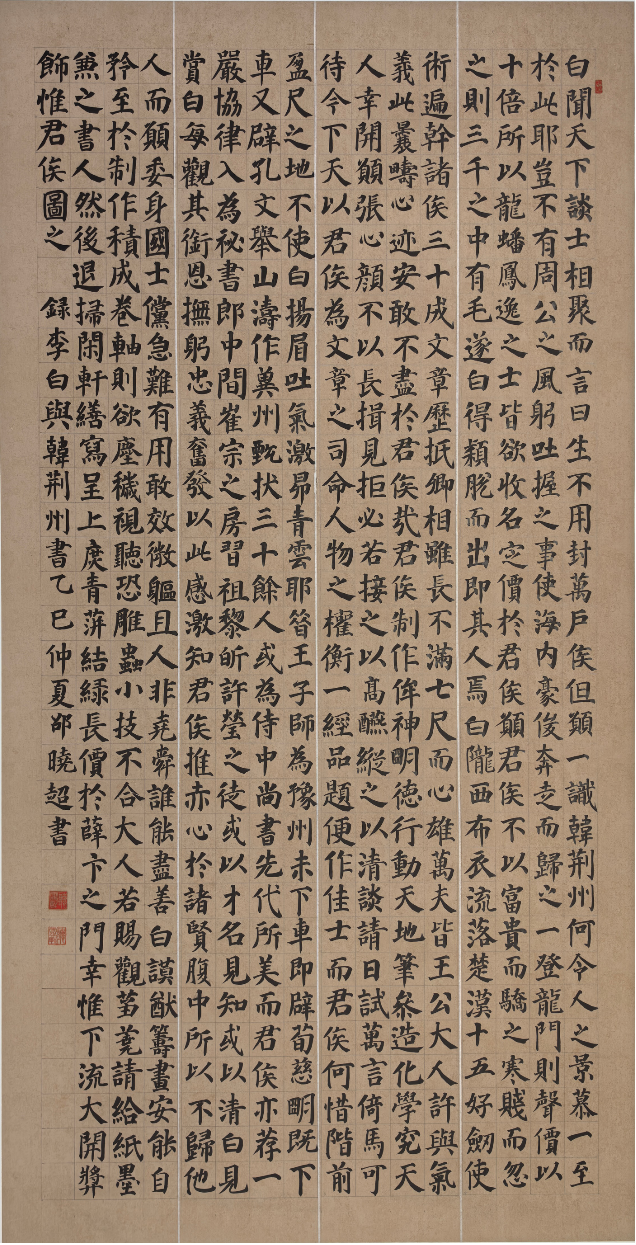 白聞天下談士相聚而言曰生不用封萬戶侯但願一識韓荊州何令人之景慕一至
於此耶豈不有周公之風躬吐握之事使海内豪俊奔走而歸之一登龍門則聲價以
十倍所以龍蟠鳳逸之士皆欲收名定價於君侯願君侯不以富貴而驕之寒賤而忽
之則三千之中有毛遂白得穎脫而出即其人焉白隴西布衣流落楚漢十五好劒使
術遍幹諸侯三十成文章歷抵卿相雖長不滿七尺而心雄萬夫皆王公大人許與氣
義此曩疇心迹安敢不盡於君侯哉君侯制作侔神明德行動天地筆參造化學究天
人幸開願張心顏不以長揖見拒必若接之以高醼縱之以清談請日試萬言倚馬可
待今下天以君侯為文章之司命人物之權衡一經品題便作佳士而君侯何惜階前
盈尺之地不使白揚眉吐氣激昂青雲耶昔王子師為豫州未下車即辟荀慈明既下
車又辟孔文舉山濤作冀州甄拔三十餘人或為侍中尚書先代所美而君侯亦荐一
嚴協律入為祕書郎中間崔宗之房習祖黎昕許瑩之徒或以才名見知或以清白見
賞白每觀其銜恩撫躬忠義奮發以此感激知君侯推赤心於諸賢腹中所以不歸他
人而願委身國士儻急難有用敢效微軀且人非堯舜誰能盡善白謨猷籌畫安能自
矜至於制作積成卷軸則欲塵穢視聽恐雕蟲小技不合大人若賜觀芻蕘請給紙墨
兼之書人然後退掃閑軒繕寫呈上庶青萍結緑長價於薛卞之門幸惟下流大開獎
飾惟君侯圖之 録李白與韓荊州書乙巳仲夏邵曉超書